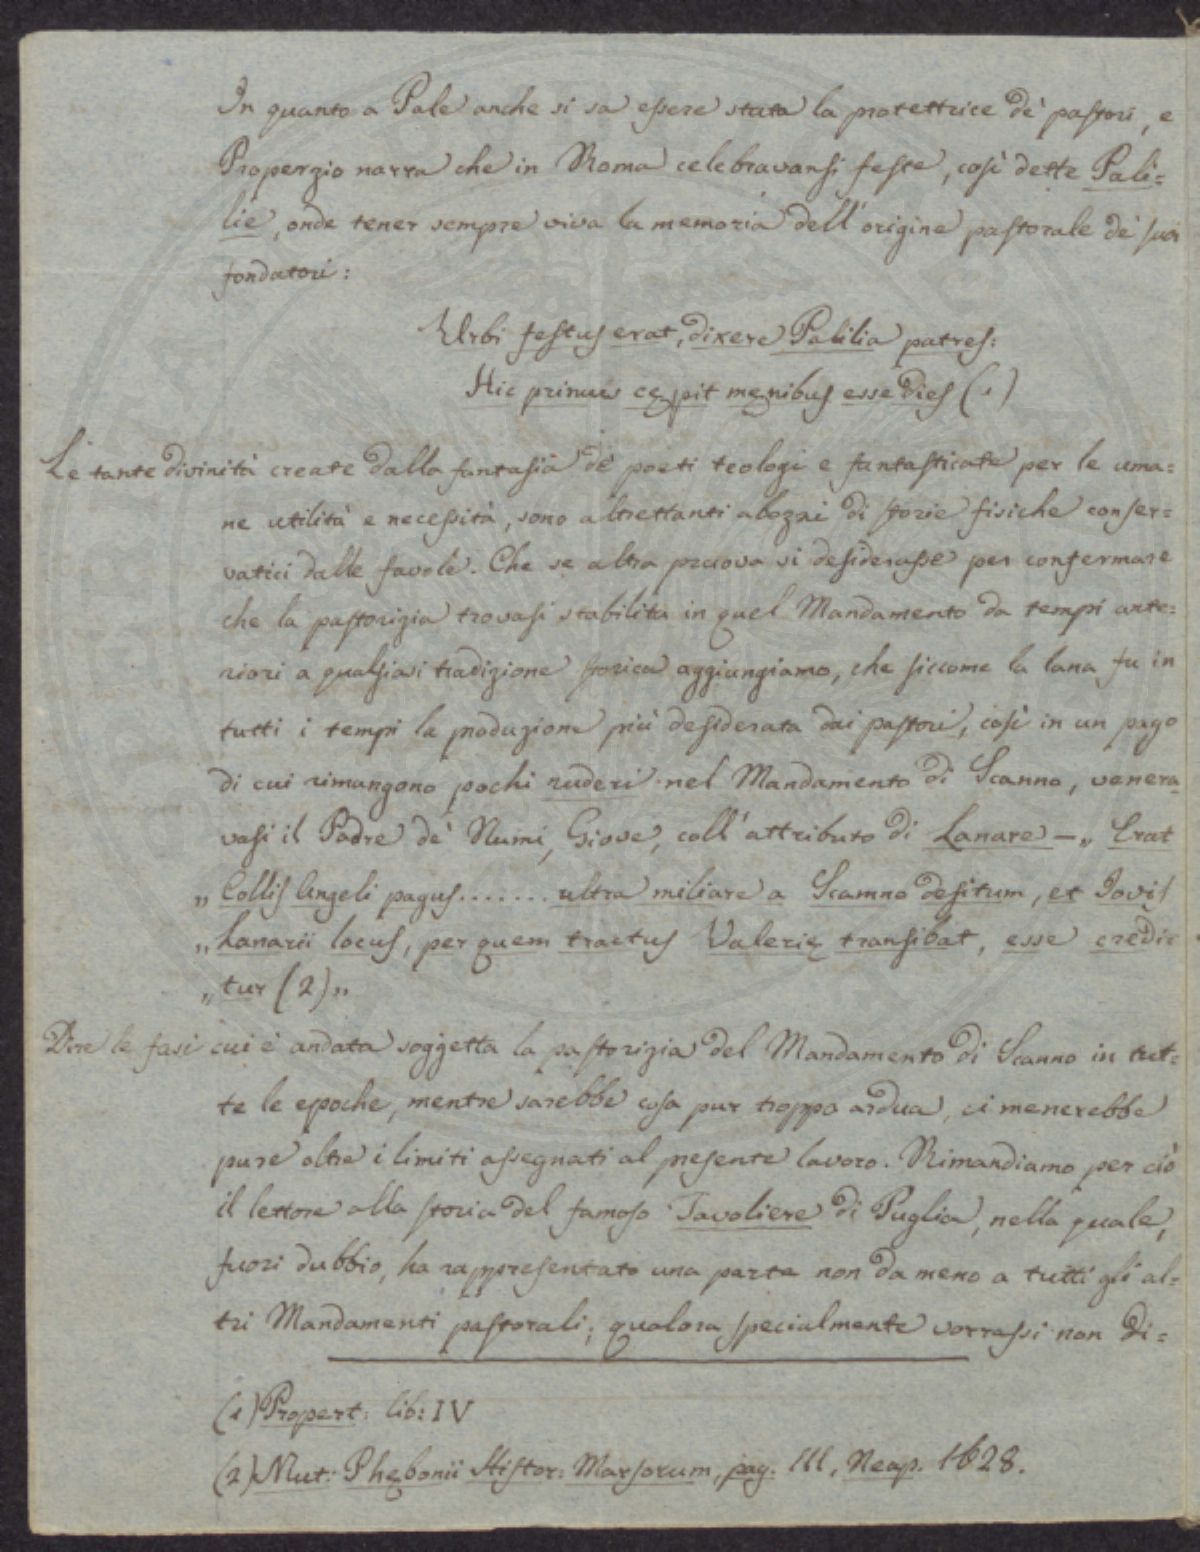 In quanto a Pale anche si sa essere stata la protettrice de' pastori, e
Properzio narra che in Roma celebravansi feste, così dette Pali=
lie, onde tener sempre viva la memoria dell'origine pastorale de' suoi
fondatori:
Urbi festus erat, dixere Palilia patres:
Hic primus cępit męnibus esse dies (1)
Le tante divinità create dalla fantasia de' poeti teologi e fantasticate per le uma=
ne utilità e necessità, sono altrettanti abozzi di storie fisiche conser=
vatici dalle favole. Che se altra pruova si desiderasse per confermare
che la pastorizia trovasi stabilita in quel Mandamento da tempi ante=
riori a qualsiasi tradizione storica aggiungiamo, che siccome la lana fu in
tutti i tempi la produzione più desiderata dai pastori, così in un pago
di cui rimangono pochi ruderi nel Mandamento di Scanno, venera
vasi il Padre de' Numi, Giove, coll'attributo di Lanare – „ Erat
„ Collis Angeli pagus....... ultra miliare a Scamno desitum, et Jovis
„ Lanarii locus, per quem tractus Valerię transibat, esse credi=
„ tur (2) „
Dire le fasi cui è andata soggetta la pastorizia del Mandamento di Scanno in tut=
te le epoche, mentre sarebbe cosa pur troppo ardua, ci menerebbe
pure oltre i limiti assegnati al presente lavoro. Rimandiamo per ciò
il lettore alla storia del famoso Tavoliere di Puglia, nella quale,
fuori dubbio, ha rappresentato una parte non da meno a tutti gli al=
tri Mandamenti pastorali; qualora specialmente vorrassi non di=
(1) Propert: lib: IV
(2) Mut: Phębonii Histor: Marsorum, pag. 111, Neap. 1628.